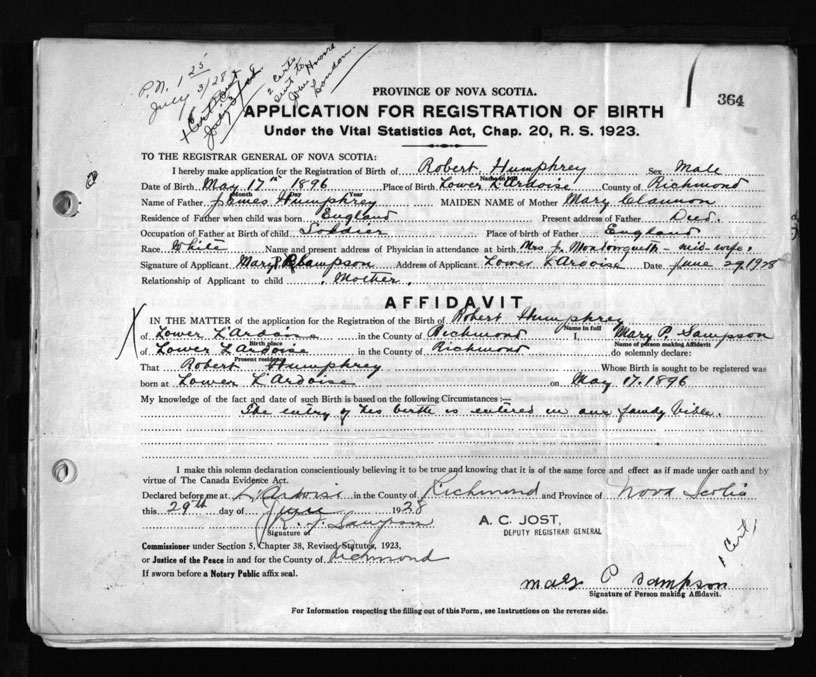 P.N. 1 25
July 3/28
2 Certs
sent to
London.
364
PROVINCE OF NOVA SCOTIA.
APPLICATION FOR REGISTRATION OF BIRTH
Under the Vital Statistics Act, Chap. 20, R. S. 1923.
TO THE REGISTRAR GENERAL OF NOVA SCOTIA:
I hereby make application for the Registration of Birth of Robert Humphrey Sex Male
Name in full
Date of Birth May 17th 1896 Place of Birth Lower L'Ardoise County of Richmond
Month Day Year
Name of Father James Humphrey MAIDEN NAME of Mother Mary
Residence of Father when child was born England Present address of Father Died.
Occupation of Father at Birth of child Soldier Place of birth of Father England
Race White Name and present address of Physician in attendance at birth Mrs J. mid-wife.
Signature of Applicant Mary P Sampson Address of Applicant Lower L'Ardoise Date June 29, 1928
Relationship of Applicant to child Mother.
AFFIDAVIT
IN THE MATTER of the application for the Registration of the Birth of Robert Humphrey
Name in full
of Lower L'Ardoise in the County of Richmond I, Mary P. Sampson
Birth place Name of person making Affidavit
of Lower L'Ardoise in the County of Richmond do solemnly declare:
Present residence
That Robert Humphrey Whose Birth is sought to be registered was
born at Lower L'Ardoise on May 17, 1896
My knowledge of the fact and date of such Birth is based on the following Circumstances:—
The entry of his birth is entered in our family bible.
I make this solemn declaration conscientiously believing it to be true and knowing that it is of the same force and effect as if made under oath and by
virtue of The Canada Evidence Act.
Declared before me at L'Ardoise in the County of Richmond and Province of Nova Scotia
this 29th day of June 1928
R. J. Sampson
Signature of
A. C. JOST,
DEPUTY REGISTRAR GENERAL
Commissioner under Section 5, Chapter 38, Revised Statutes, 1923,
or Justice of the Peace in and for the County of Richmond
If sworn before a Notary Public affix seal.
1 Cert,
Mary P Sampson
Signature of Person making Affidavit.
For Information respecting the filling out of this Form, see Instructions on the reverse side.